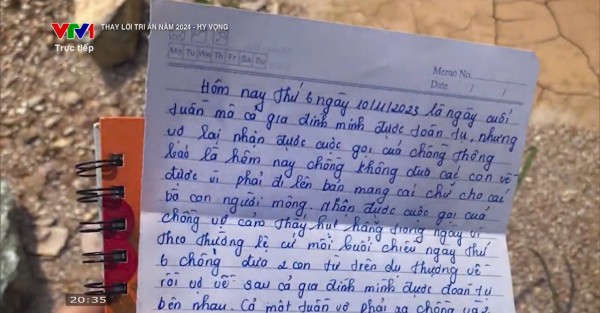 VTV1
THAY LỜI TRI ÂN NĂM 2024 - HY VỌNG
Trực tiếp
Mo Tu We Th Fr Sa Su
Memo No.
Date / /
Hôm nay thứ 6 ngày 10/11/2023 là ngày cuối
tuần mà cả gia đình mình được đoàn tụ, nhưng
vợ lại nhận được cuộc gọi của chồng thông
báo là hôm nay chồng không đưa các con về
được vì phải đi lên bản mang cái chữ cho các
bà con người mông. Nhận được cuộc gọi của
chồng vợ cảm thấy hụt hẫng trong ngày vì
theo thường lệ cứ mỗi buổi chiều ngày thứ
6 chồng đưa 2 con từ trên du thượng về
rồi vợ về sau cả gia đình mình được đoàn tụ
bên nhau. Cả một tuần vợ phải xa chồng và 2
20:35